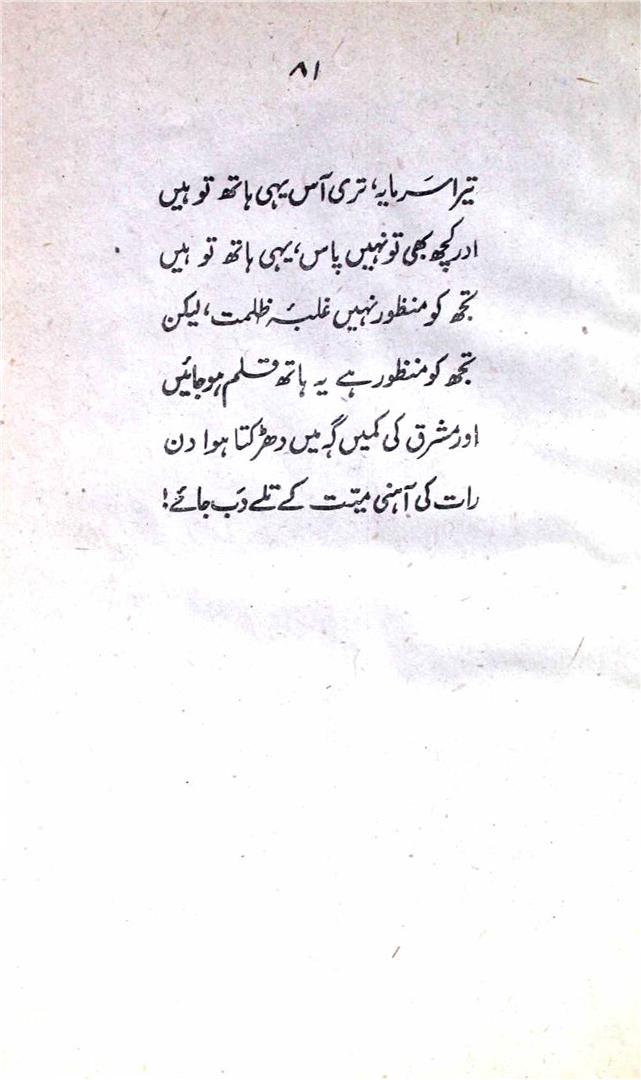 ۸۱
تیرا سَرمایہ، تری آس یہی ہاتھ تو ہیں
اور کچھ بھی تو نہیں پاس، یہی ہاتھ تو ہیں
تجھ کو منظور نہیں غلبۂ ظلمت، لیکن
تجھ کو منظور ہے یہ ہاتھ قلم ہو جائیں
اور مشرق کی کمیں گہ میں دھڑکتا ہوا دن
رات کی آہنی میّت کے تلے دَب جائے!